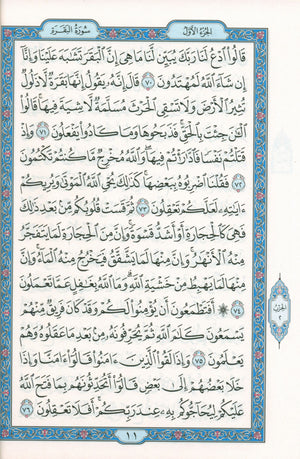 الجزء الأول
سورة البقرة
قَالُوا ادْعُ لَنَا رَبَّكَ يُبَيِّن لَّنَا مَا هِيَ إِنَّ الْبَقَرَ تَشَابَهَ عَلَيْنَا وَإِنَّا
إِن شَاءَ اللَّهُ لَمُهْتَدُونَ ٧٠ قَالَ إِنَّهُ يَقُولُ إِنَّهَا بَقَرَةٌ لَّا ذَلُولٌ
تُثِيرُ الْأَرْضَ وَلَا تَسْقِي الْحَرْثَ مُسَلَّمَةٌ لَّا شِيَةَ فِيهَا قَالُوا
الْآنَ جِئْتَ بِالْحَقِّ فَذَبَحُوهَا وَمَا كَادُوا يَفْعَلُونَ ٧١ وَإِذْ
قَتَلْتُمْ نَفْسًا فَادَّارَأْتُمْ فِيهَا وَاللَّهُ مُخْرِجٌ مَّا كُنتُمْ تَكْتُمُونَ
٧٢ فَقُلْنَا اضْرِبُوهُ بِبَعْضِهَا كَذَلِكَ يُحْيِي اللَّهُ الْمَوْتَى وَيُرِيكُمْ
آيَاتِهِ لَعَلَّكُمْ تَعْقِلُونَ ٧٣ ثُمَّ قَسَتْ قُلُوبُكُم مِّن بَعْدِ ذَلِكَ
فَهِيَ كَالْحِجَارَةِ أَوْ أَشَدُّ قَسْوَةً وَإِنَّ مِنَ الْحِجَارَةِ لَمَا يَتَفَجَّرُ
مِنْهُ الْأَنْهَارُ وَإِنَّ مِنْهَا لَمَا يَشَّقَّقُ فَيَخْرُجُ مِنْهُ الْمَاءُ وَإِنَّ
مِنْهَا لَمَا يَهْبِطُ مِنْ خَشْيَةِ اللَّهِ وَمَا اللَّهُ بِغَافِلٍ عَمَّا تَعْمَلُونَ
٧٤ ۞ أَفَتَطْمَعُونَ أَن يُؤْمِنُوا لَكُمْ وَقَدْ كَانَ فَرِيقٌ مِّنْهُمْ
يَسْمَعُونَ كَلَامَ اللَّهِ ثُمَّ يُحَرِّفُونَهُ مِن بَعْدِ مَا عَقَلُوهُ وَهُمْ
يَعْلَمُونَ ٧٥ وَإِذَا لَقُوا الَّذِينَ آمَنُوا قَالُوا آمَنَّا وَإِذَا
خَلَا بَعْضُهُمْ إِلَى بَعْضٍ قَالُوا أَتُحَدِّثُونَهُم بِمَا فَتَحَ اللَّهُ
عَلَيْكُمْ لِيُحَاجُّوكُم بِهِ عِندَ رَبِّكُمْ أَفَلَا تَعْقِلُونَ ٧٦
الحزب
٢
١١